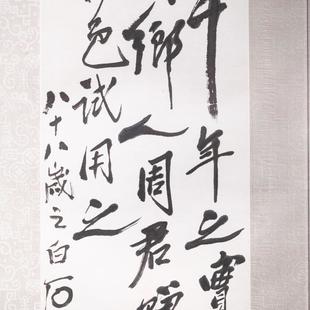 年之寶
鄉人周君
色試用之
八十八歲之白石